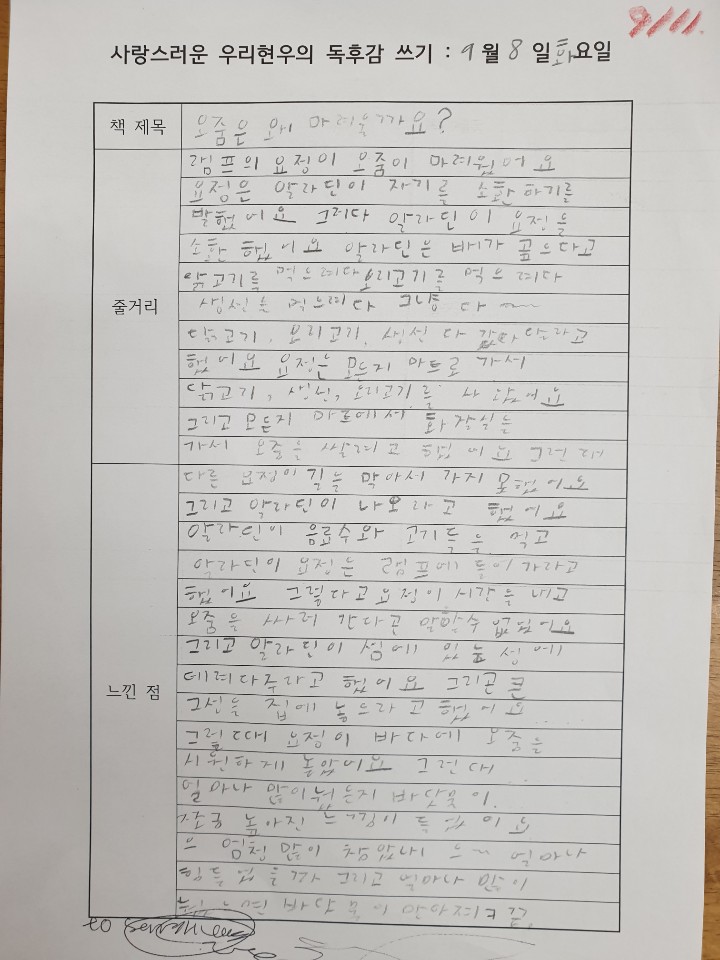 9/11.
사랑스러운 우리현우의 독후감 쓰기 : 9월 8일 화요일
책 제목
오줌은 왜 마려울까요?
줄거리
램프의 요정이 오줌이 마려웠어요
요정은 알라딘이 자기를 소환하기를
발했어요 그러다 알라딘이 요정을
소환 했어요 알라딘은 배가 곺으다고
닭고기를 먹으려다 오리고기를 먹으려다
생선을 먹으려다 그냥 다~
닭고기, 오리고기, 생선 다 갔다 달라고
했어요 요정은 모든지 마트로 가서
닭고기, 생선, 오리고기를 사 왔어요
그리고 모든지 마트에서 화장실을
가서 오줌을 쌀려고 했어요 그런데
느낀 점
다른 요정이 길을 막아서 가지 못했어요
그리고 알라딘이 나오라고 했어요
알라딘이 음료수와 고기들을 먹고
알라딘이 요정는 램프에 들어가라고
했어요 그렇다고 요정이 시간을 내고
오줌을 싸러 간다곤 말할수 없었어요
그리고 알라딘이 섬에 있는 섬에
데려다주라고 했어요 그리곤
그선을 집에 놓으라고 했어요
그럴때 요정이 바다에 오줌을
시원하게 놓았어요 그런대
얼마나 많이 바닷물이
높아진 느낌이 들었어요
엄청 많이 참았나 얼마나
힘들었을까 그리고 얼마나 많이
바닷물이